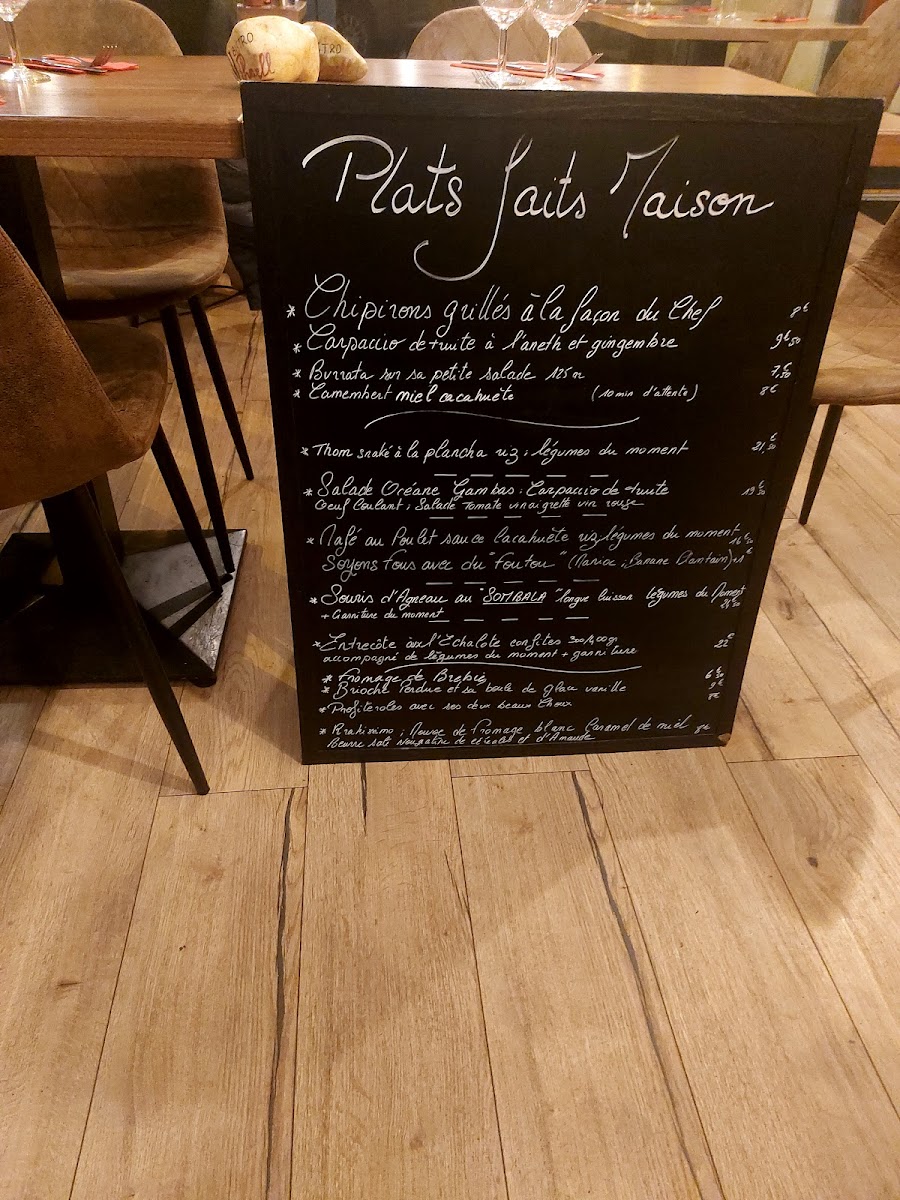 BISTRO
Plats faits Maison
* Chipirons grillés à la façon du Chef 8€
* Carpaccio de truite à l'aneth et gingembre 9€50
* Burrata sur sa petite salade 125gr 7€,50
* Camembert miel cacahuète (10 min d'attente) 8€
* Thon snaké à la plancha riz ; légumes du moment 21€,50
* Salade Océane Gambas ; Carpaccio de truite 19€50
Oeuf Coulant ; Salade Tomate vinaigrette vin rouge
* Mafé au Poulet sauce Cacahuète riz légumes du moment 16€50
Soyons fous avec du "Foutou" (Manioc ; Banane Plantain) +1€
* Souris d'Agneau au "SOMBALA" longue cuisson légumes du Moment
+ Garniture du moment 24€50
* Entrecôte aux l'Echalote confites 300/400gr 22€
accompagné de légumes du moment + garniture
* Fromage de Brebis 6€50
* Brioche Perdue et sa boule de glace vanille 9€
* Profiteroles avec ses deux beaux Choux 8€
* Pirakissimo ; Mousse de fromage blanc Caramel de miel 8€
Beurre salé Nougatine de céréales et d'Amande